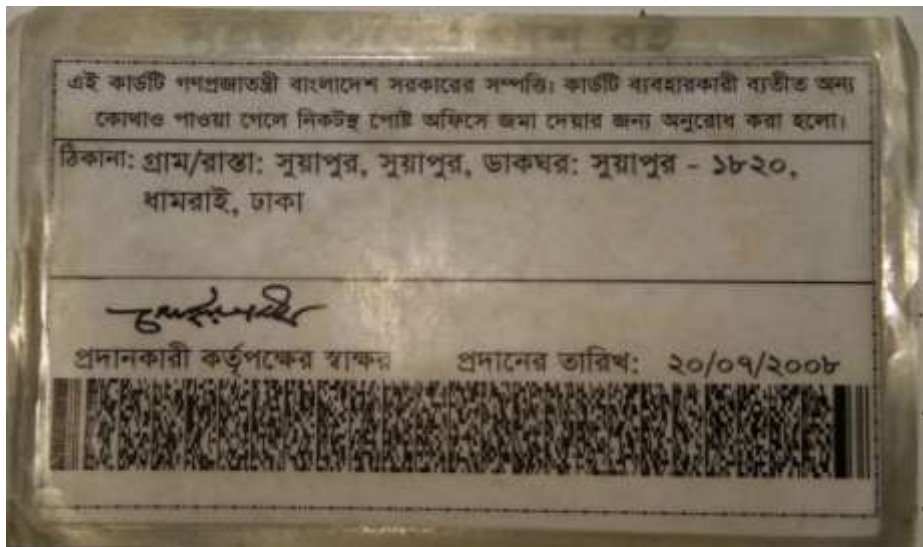 এই কার্ডটি গণপ্রজাতন্ত্রী বাংলাদেশ সরকারের সম্পত্তি। কার্ডটি ব্যবহারকারী ব্যতীত অন্য
কোথাও পাওয়া গেলে নিকটস্থ পোষ্ট অফিসে জমা দেয়ার জন্য অনুরোধ করা হলো।
ঠিকানা: গ্রাম/রাস্তা: সুয়াপুর, সুয়াপুর, ডাকঘর: সুয়াপুর - ১৮২০,
ধামরাই, ঢাকা
প্রদানকারী কর্তৃপক্ষের স্বাক্ষর প্রদানের তারিখ: ২০/০৭/২০০৮